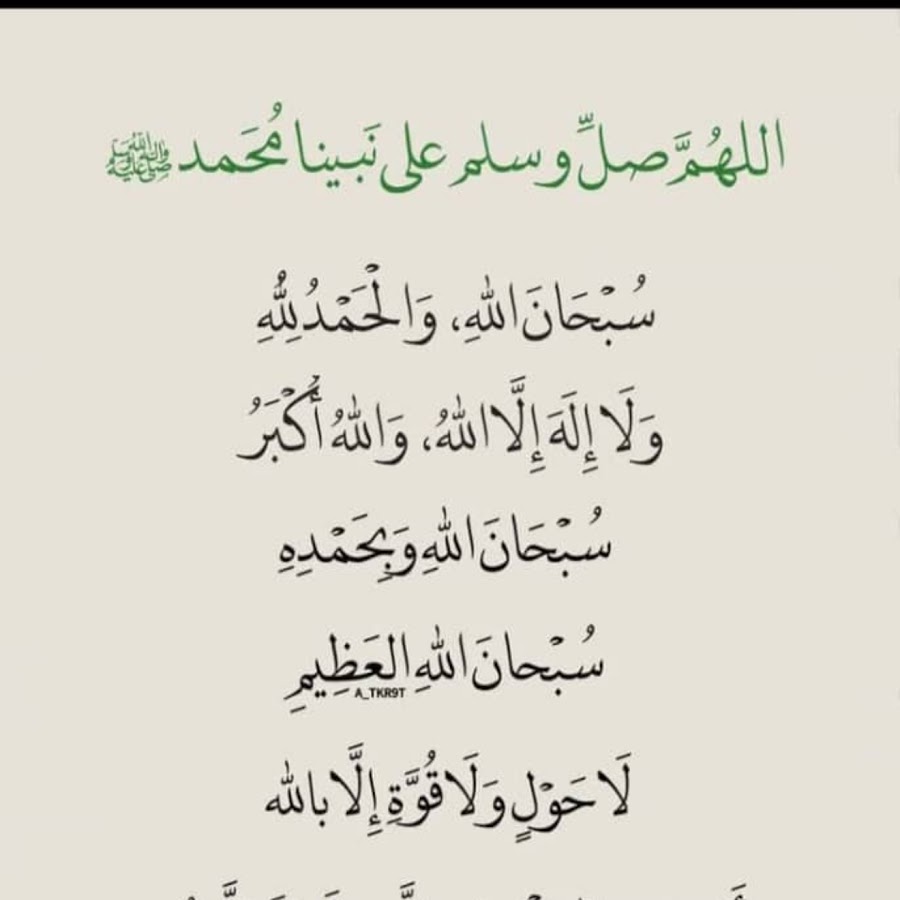 اللهُمَّ صلِّ و سلم على نَبينا مُحَمد ﷺ
سُبْحَانَ اللهِ، وَالْحَمْدُ لِلّٰهِ
وَلَا إِلَهَ إِلَّا اللهُ، وَاللهُ أَكْبَرُ
سُبْحَانَ اللهِ وَبِحَمْدِهِ
سُبْحانَ اللهِ العَظِيمِ
A_TKR9T
لَا حَوْلٍ وَلَا قُوَّةِ إِلَّا بالله